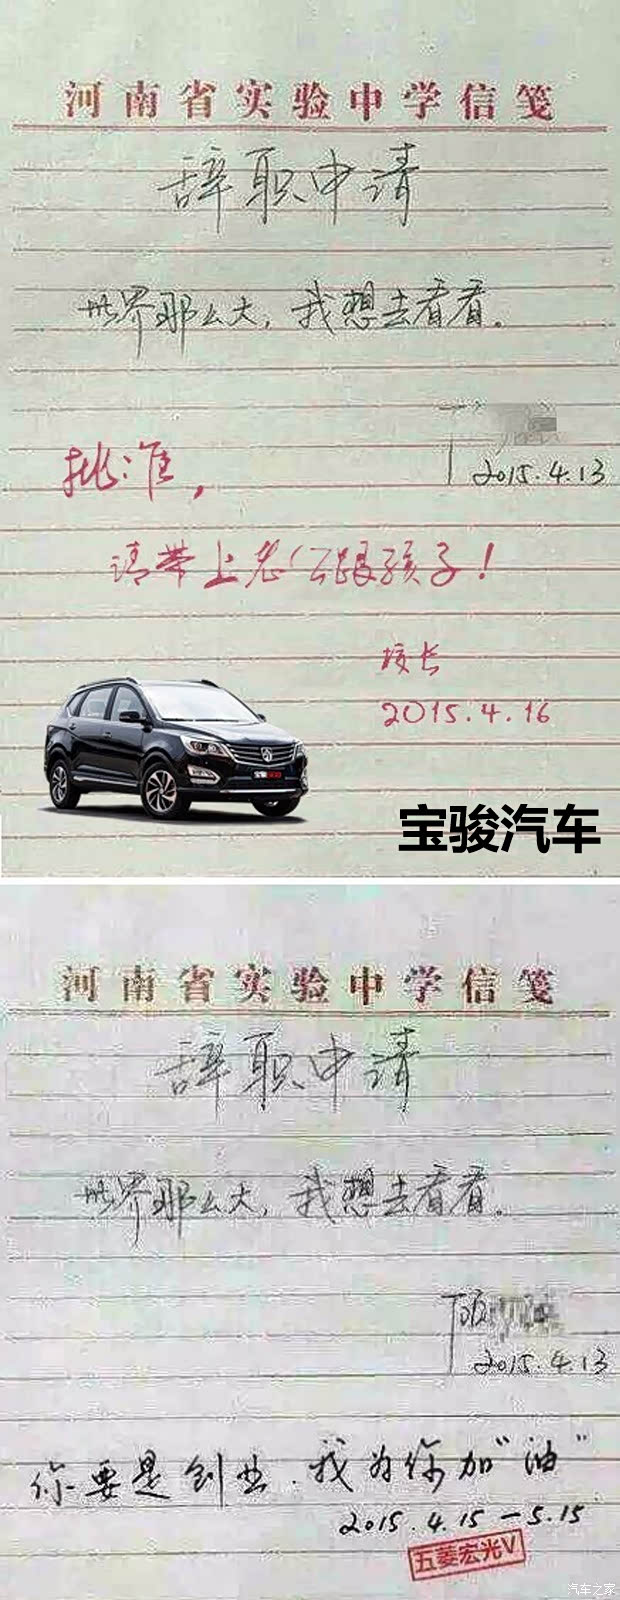 河南省实验中学信笺
辞职申请
世界那么大，我想去看看。
2015.4.13
批准，
请带上老公跟孩子！
校长
2015.4.16
宝骏汽车
河南省实验中学信笺
辞职申请
世界那么大，我想去看看。
2015.4.13
你要是创业．我为你加“油”
2015.4.15－5.15
五菱宏光V
汽车之家